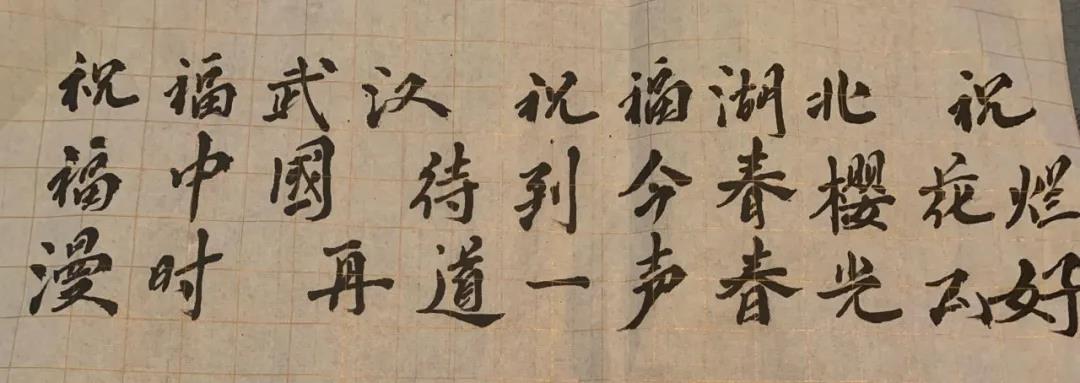 祝福武汉 祝福湖北 祝
福中國 待到今春樱花烂
漫时 再道一声春光正好